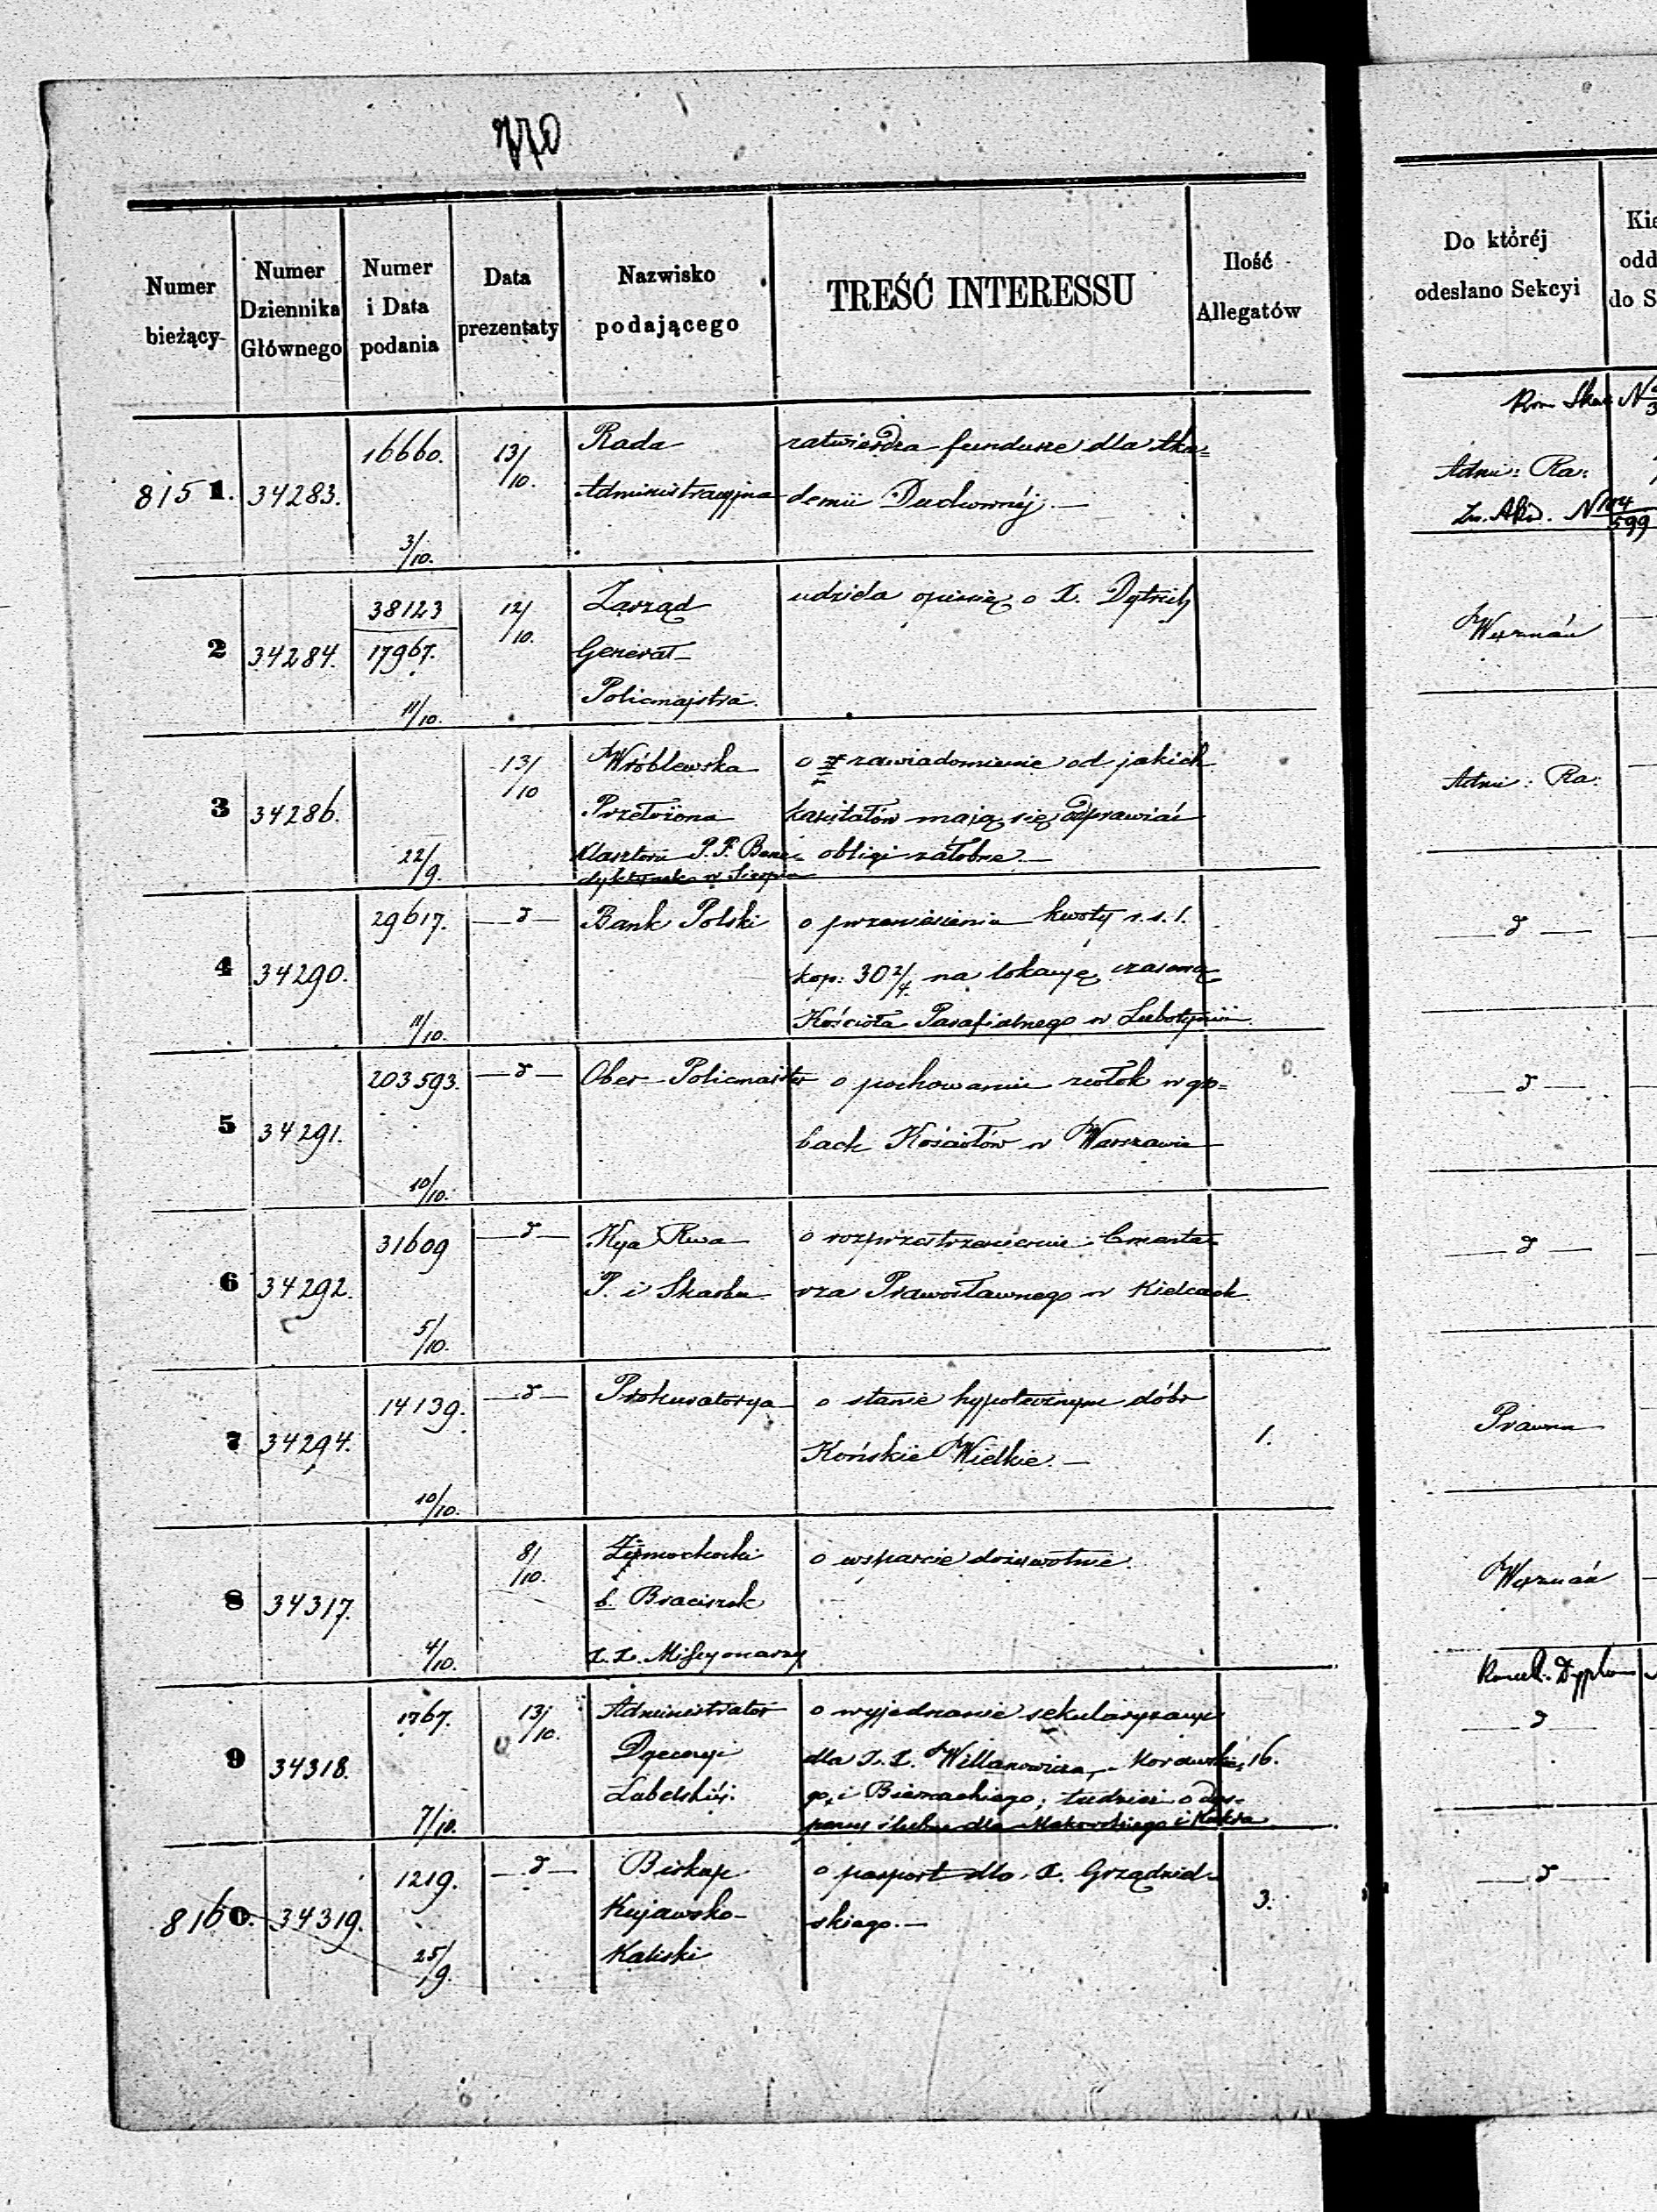 770
Numer bieżący
Numer Dziennika Głównego
Numer i Data podania
Data prezentaty
Nazwisko podającego
TREŚĆ INTERESSU
Ilość Allegatów
Do któréj odesłano Sekcyi
Kie
odd
do S
8151. 34283. 16660. 3/10. 13/10.
Rada
Administracyjna
zatwierdza fundusze dla Aka=
demii Duchownéj.—
Adm: Ra:
2 34284. 38123
17967. 11/10. 12/10.
Zarząd
Generał-
Policmajstra.
udziela opinię o X.
Wyznań
3 34286. 22/9. 13/10
Wróblewska
Przełożona
Klasztoru P.P. Bene=
dyktynek w Sierpcu
o zawiadomienie od jakich
kapitałów mają się odprawiać
obligi żałobne.—
Adm: Ra:
4 34290. 29617. 11/10. —d—
Bank Polski
o przeniesieniu kwoty r.s. 1.
kop: 30 2/4. na lokacyę czasową
Kościoła Parafialnego w Lubotyniu.
—d—
5 34291. 203593. 10/10. —d—
Ober-Policmajster
o pochowaniu zwłok w gro=
bach Kościołów w Warszawie
—d—
6 34292. 31609 5/10. —d—
Kya Rwa
P. i Skarbu
o rozprzestrzenienie Cmenta-
rza Prawosławnego w Kielcach.
—d—
7 34294. 14139. 10/10. —d—
Prokuratorya
o stanie hypotecznym dóbr
Końskie Wielkie.—
1.
Prawna
8 34317. 4/10. 8/10.
b. Braciszek
X.X. Missyonarzy
o wsparcie dożywotnie.
Wyznań
9 34318. 1767. 7/10. 13/10.
Administrator
Dyecezyi
Lubelskiéj.
o wyjednanie sekularyzacyi
dla X.X. Willanowicza,
go, i Biernackiego; tudzież o dys-
pensy ślubne dla Makowskiego i
16.
—d—
8160. 34319. 1219. 25/9. —d—
Biskup
Kujawsko-
Kaliski
o pasport dla X. Grządziel-
skiego.—
3.
—d—